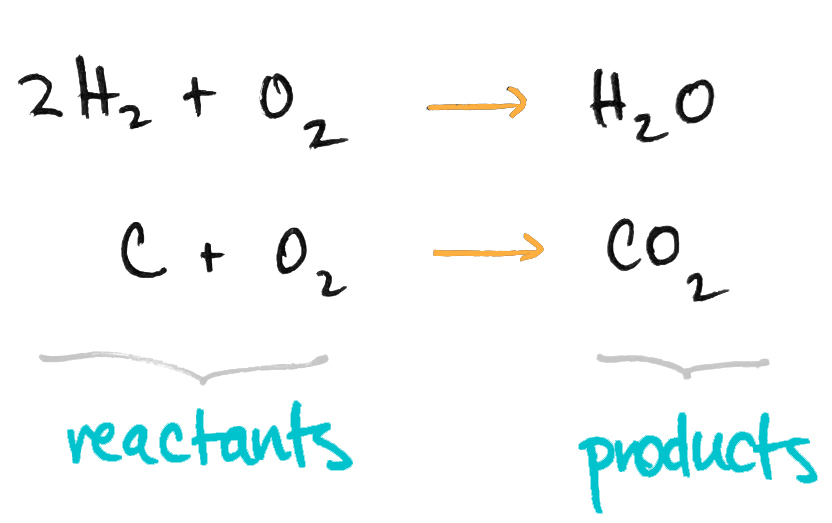 2H₂ + O₂ → H₂O
C + O₂ → CO₂
reactants products